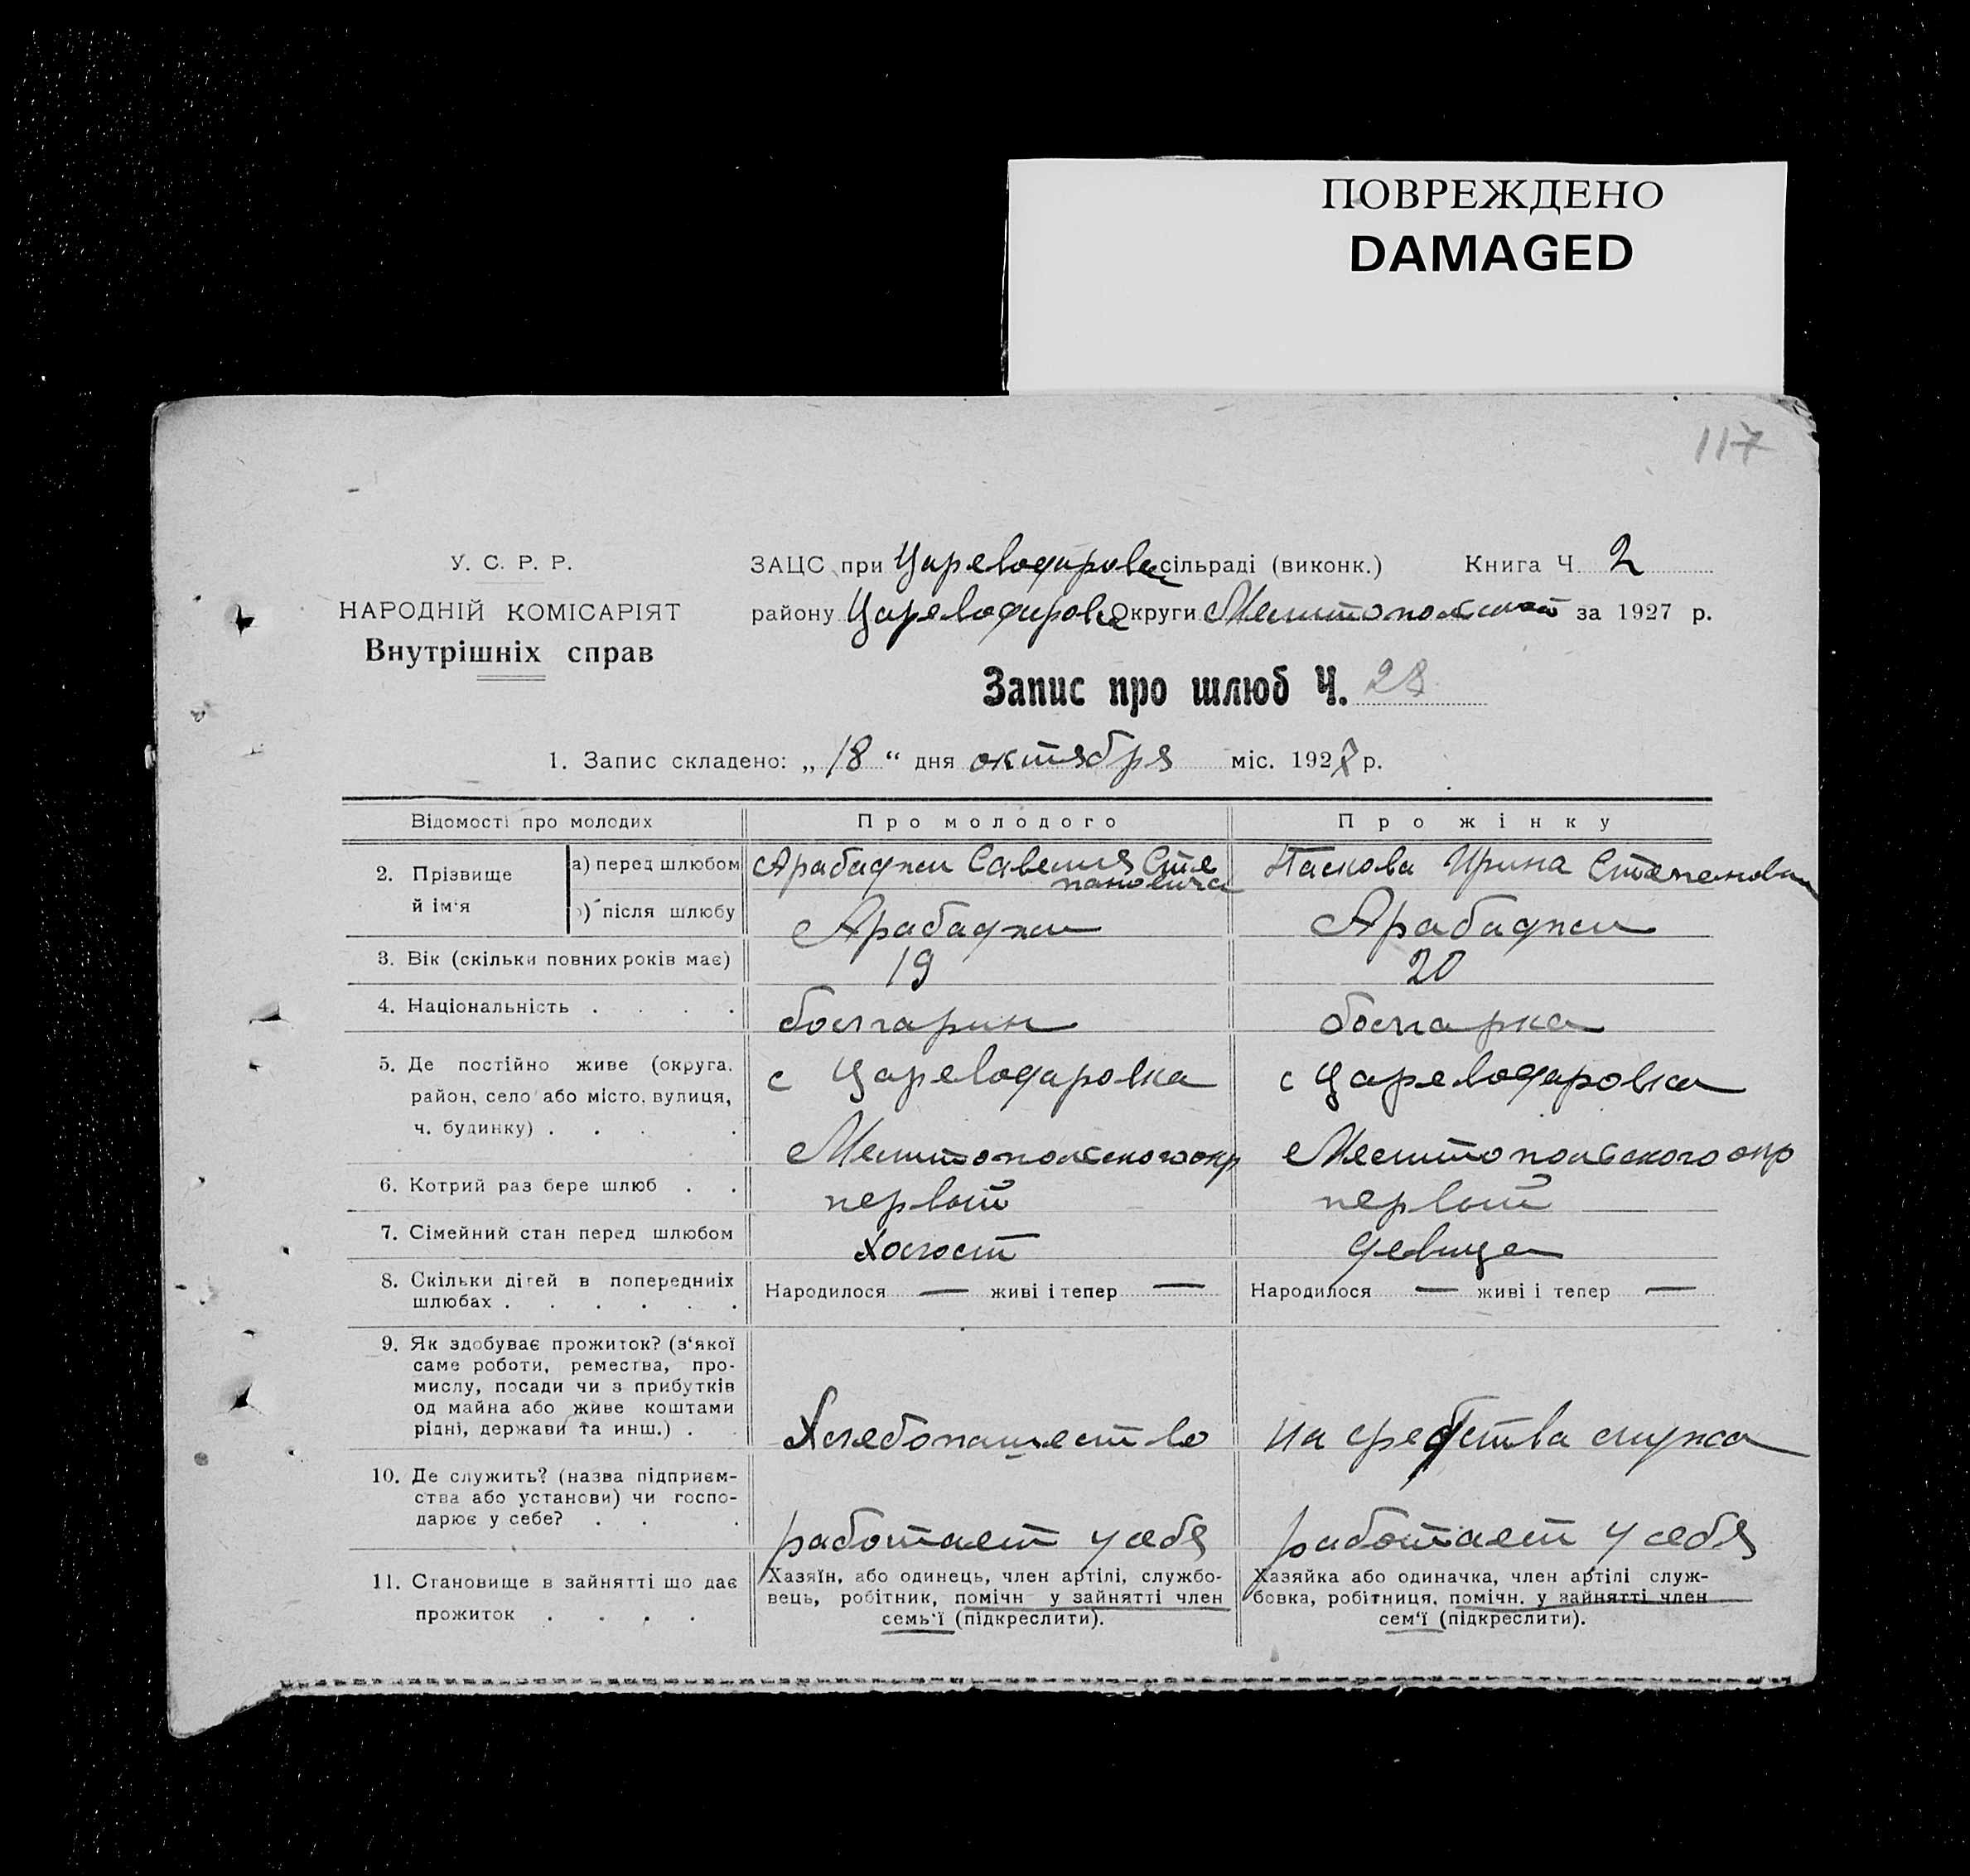 ПОВРЕЖДЕНО
DAMAGED
117
У. С. Р. Р.
НАРОДНІЙ КОМІСАРІЯТ
Внутрішніх справ
ЗАЦС при Цареводаровск сільраді (виконк.) Книга Ч. 2
району Цареводаровск Округи Мелитопольской за 1927 р.
Запис про шлюб Ч. 28
1. Запис складено: „ 18 “ дня октября міс. 1927 р.
Відомості про молодих
Про молодого
Про жінку
2. Прізвище й ім'я
а) перед шлюбом
Арабаджи Савелия Степановича
Паскова Ирина Степановна
б) після шлюбу
Арабаджи
Арабаджи
3. Вік (скільки повних років має)
19
20
4. Національність . . . .
болгарин
болгарка
5. Де постійно живе (округа,
район, село або місто, вулиця,
ч. будинку) . . . .
с Цареводаровка
Мелитопольского окр
с Цареводаровка
Мелитопольского окр
6. Котрий раз бере шлюб . .
первый
первый
7. Сімейний стан перед шлюбом
холост
девица
8. Скільки дітей в попередниіх
шлюбах . . . . . .
Народилося — живі і тепер —
Народилося — живі і тепер —
9. Як здобуває прожиток? (з'якої
саме роботи, ремества, про-
мислу, посади чи з прибутків
од майна або живе коштами
рідні, держави та инш.) .
Хлебопашество
на средства мужа
10. Де служить? (назва підприєм-
ства або установи) чи госпо-
дарює у себе? . . .
работает у себя
работает у себя
11. Становище в зайнятті що дає
прожиток . . . .
Хазяїн, або одинець, член артілі, службо-
вець, робітник, помічн у зайнятті член
семь'ї (підкреслити).
Хазяйка або одиначка, член артілі служ-
бовка, робітниця, помічн. у зайнятті член
сем'ї (підкреслити).